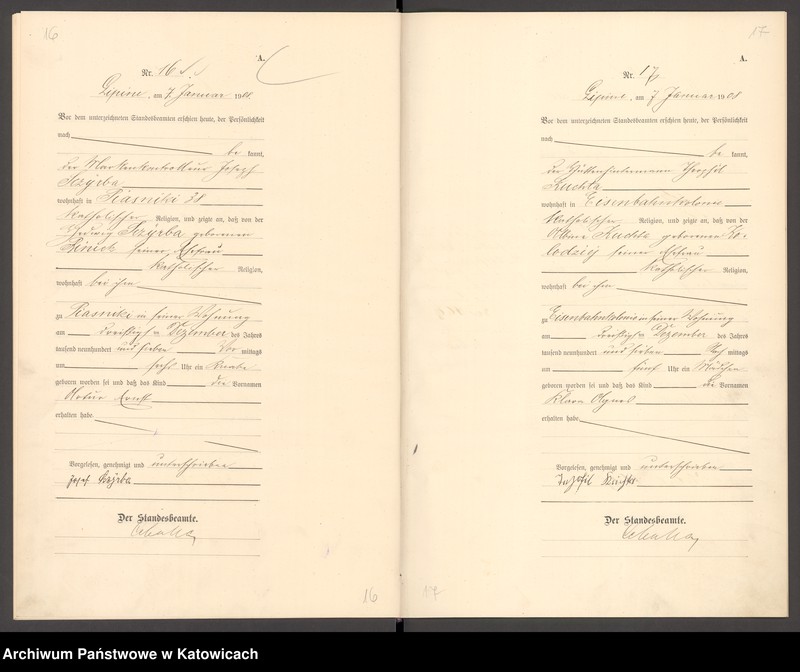 16
A.
Nr. 16
Lipine, am 7. Januar 1908
Vor dem unterzeichneten Standesbeamten erschien heute, der Persönlichkeit
nach
be kannt,
der Markenkontrolleur Joseph
Szyrba
wohnhaft in Piasniki 38
katholischer Religion, und zeigte an, daß von der
Hedwig Szyrba geborenen
seiner Ehefrau
katholischer Religion,
wohnhaft bei ihm
zu Piasniki in seiner Wohnung
am dreißigsten Dezember des Jahres
tausend neunhundert und sieben Vor mittags
um sechs Uhr ein Knabe
geboren worden sei und daß das Kind die Vornamen
Artur Ernst
erhalten habe.
Vorgelesen, genehmigt und unterschrieben
Josef Szyrba
Der Standesbeamte.
16
17
A.
Nr. 17
Lipine, am 7 Januar 1908
Vor dem unterzeichneten Standesbeamten erschien heute, der Persönlichkeit
nach
be kannt,
der Theophil
Kuchta
wohnhaft in Eisenbahnkolonie
katholischer Religion, und zeigte an, daß von der
Albine Kuchta geborenen Ko-
lodziej seiner Ehefrau
katholischer Religion,
wohnhaft bei ihm
zu Eisenbahnkolonie in seiner Wohnung
am dreißigsten Dezember des Jahres
tausend neunhundert und sieben Nach mittags
um fünf Uhr ein Mädchen
geboren worden sei und daß das Kind die Vornamen
Klara Agnes
erhalten habe.
Vorgelesen, genehmigt und unterschrieben
Der Standesbeamte.
17
Archiwum Państwowe w Katowicach